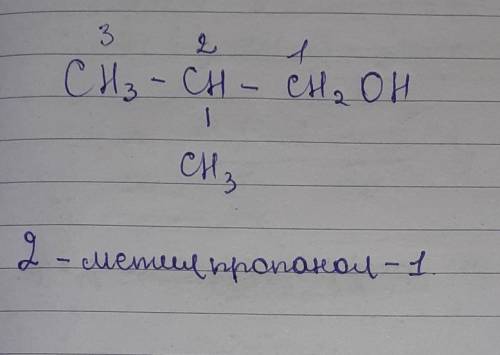 3 2 1
CH₃ - CH - CH₂OH
|
CH₃
2 - метилпропанол - 1.